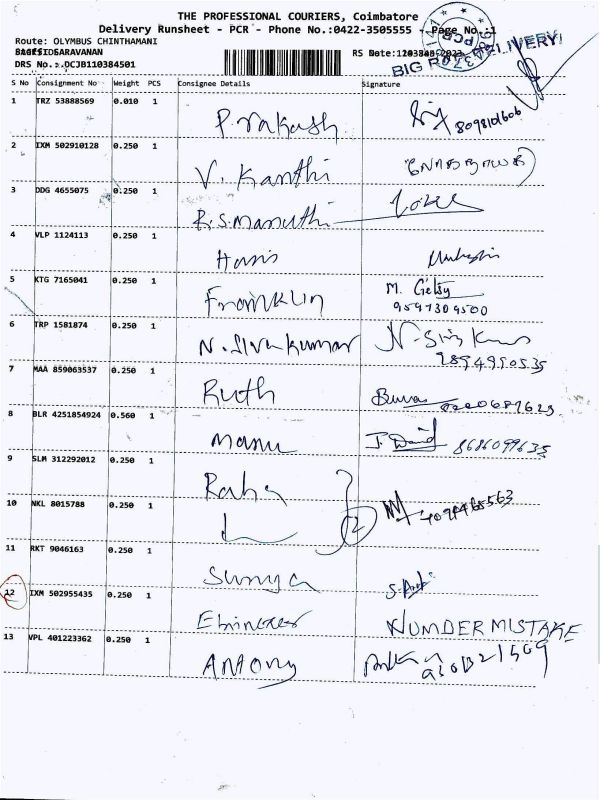 THE PROFESSIONAL COURIERS, Coimbatore
Delivery Runsheet - PCR - Phone No.:0422-3505555 - Page No.:1
Route: OLYMBUS CHINTHAMANI
SARAVANAN
DRS No.: DCJB110384501
RS Date:
BIG DELIVERY
S No Consignment No Weight PCS Consignee Details Signature
1 TRZ 53888569 0.010 1 Prakash 8098101606
2 IXM 502910128 0.250 1 V. Kanthi
3 DDG 4655075 0.250 1 R.S.Maruthi
4 VLP 1124113 0.250 1 Haris
5 KTG 7165041 0.250 1 Franklin M. Gelsy
9597309500
6 TRP 1581874 0.250 1 N. Sivakumar N-Siva Kumar
9894990535
7 MAA 859063537 0.250 1 Ruth
8 BLR 4251854924 0.560 1 Manu J. David 8686099635
9 SLM 312292012 0.250 1
10 NKL 8015788 0.250 1
11 RKT 9046163 0.250 1 Surya
12 IXM 502955435 0.250 1 Ebinezer NUMDER MISTAKE
13 VPL 401223362 0.250 1 Antony